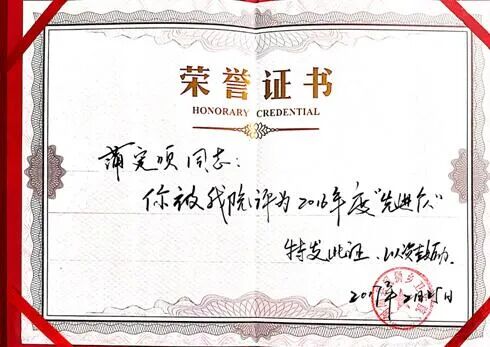 荣誉证书
HONORARY CREDENTIAL
蒲定顺同志：
你被我院评为2016年度"先进个人"
特发此证，以资鼓励。
2017年2月15日